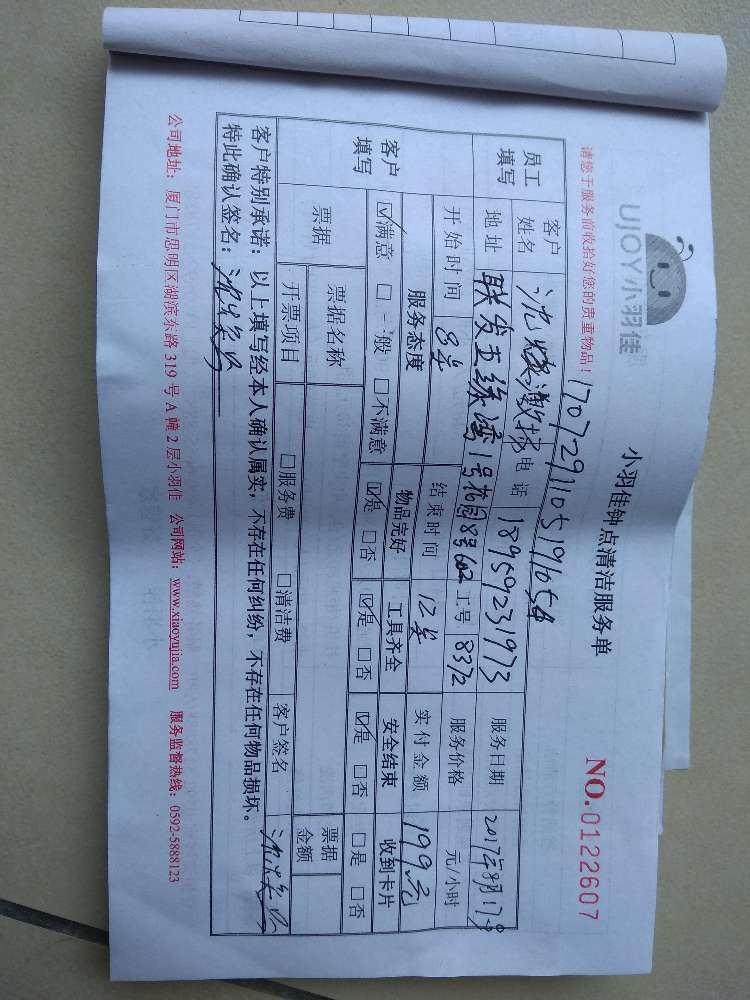 UJOY小羽佳
小羽佳钟点清洁服务单
NO.0122607
请您于服务前收拾好您的贵重物品！
1707291105191054
员工填写 客户姓名 电话 18959231973 服务日期 2017年8月17号
地址 联发五缘湾1号花园8号602 工号 8372 服务价格 元/小时
客户填写 开始时间 8点 结束时间 12点 实付金额 199元
服务态度 物品完好 工具齐全 安全结束 收到卡片
☑满意 □一般 □不满意 ☑是 □否 ☑是 □否 ☑是 □否 □是 □否
票据 票据名称 票据金额
开票项目 □服务费 □清洁费 客户签名
客户特别承诺：以上填写经本人确认属实，不存在任何纠纷，不存在任何物品损坏。
特此确认签名：
公司地址：厦门市思明区湖滨东路319号A幢2层小羽佳 公司网站：www.xiaoyujia.com 服务监督热线：0592-5888123